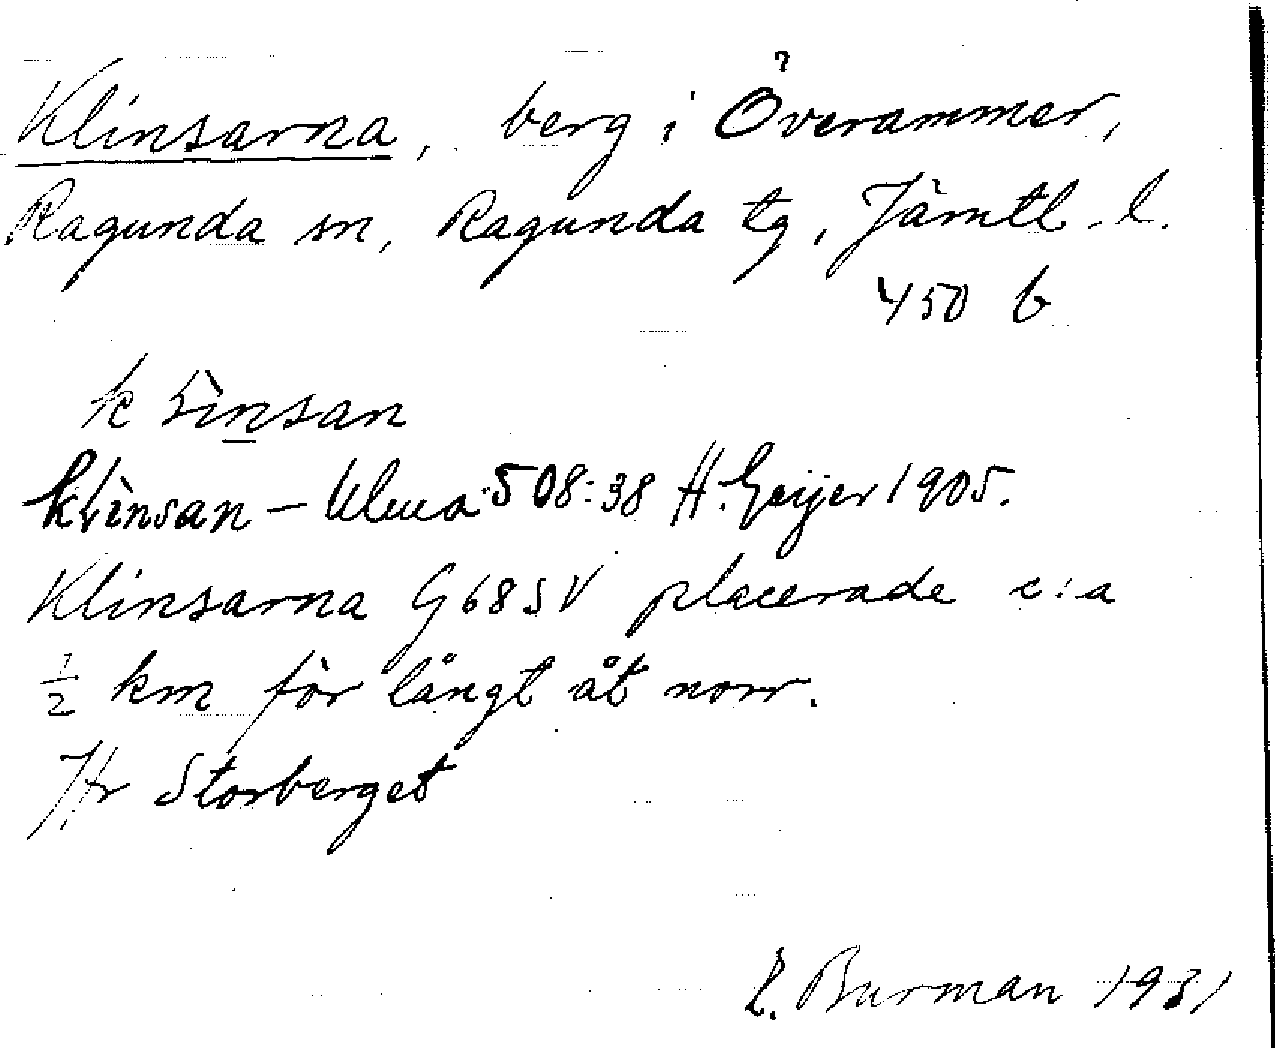 Klinsarna, berg i Överammer,
Ragunda sn, Ragunda tg, Jämtl. l.
450 b
klìnsan
klìnsan – Ulma 508:38 H. Geijer 1905.
Klinsarna G68SV placerade c:a
1/2 km för långt åt norr.
Jfr Storberget
E. Burman 1931